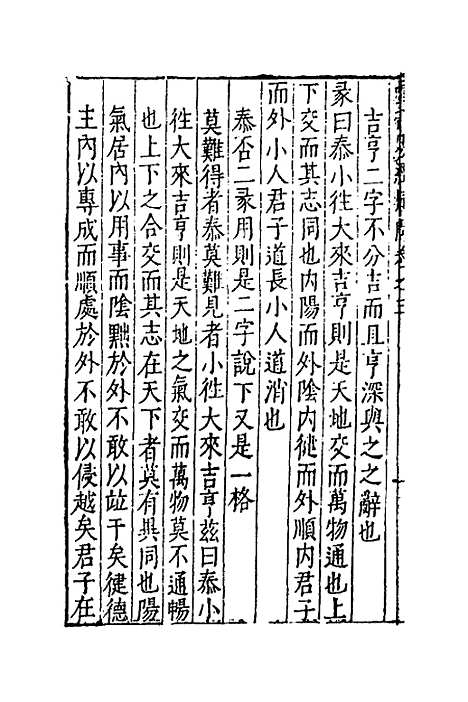 吉亨二字不分吉而且亨深與之之辭也
彖曰泰小徃大來吉亨則是天地交而萬物通也上
下交而其志同也內陽而外陰內徤而外順內君子
而外小人君子道長小人道消也
泰否二彖用則是二字說下又是一格
莫難得者泰莫難見者小徃大來吉亨茲曰泰小
徃大來吉亨則是天地之氣交而萬物莫不通暢
也上下之合交而其志在天下者莫有異同也陽
氣居內以用事而陰黜於外不敢以竝干矣徤德
主內以專成而順處於外不敢以侵越矣君子在
卷之三